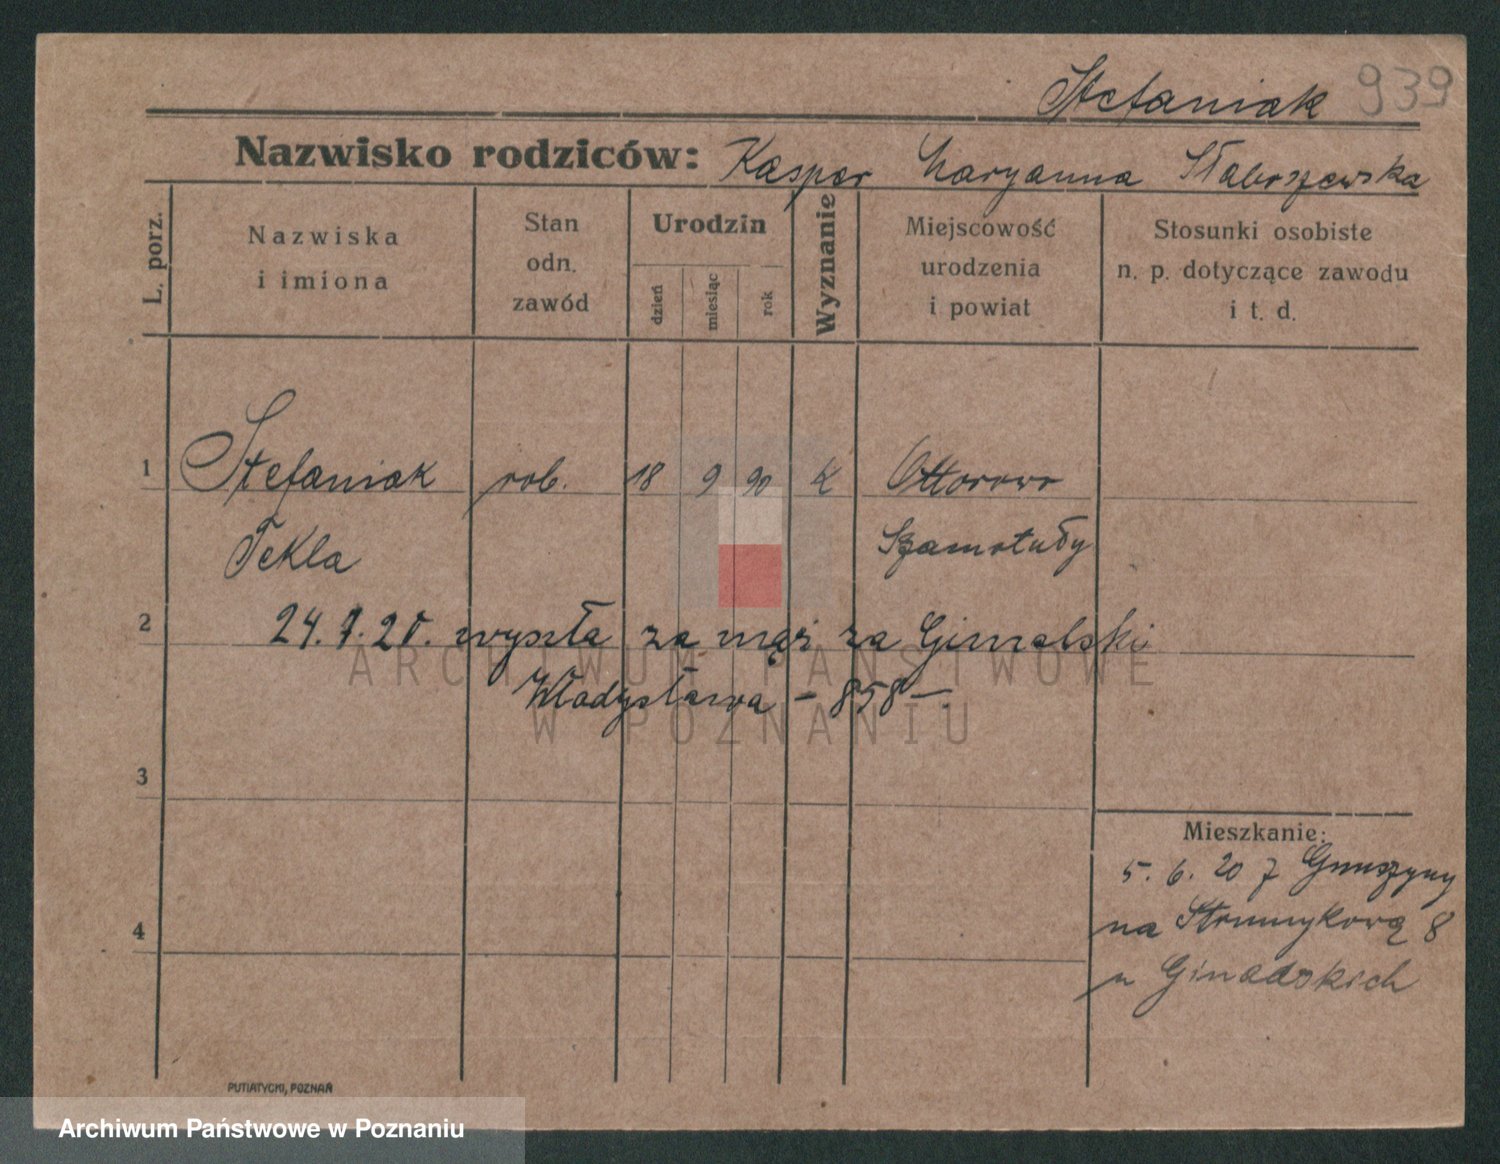 Stefaniak 939
Nazwisko rodziców: Kasper Maryanna Słaboszewska
L. porz.
Nazwiska
i imiona
Stan
odn.
zawód
Urodzin
dzień
miesiąc
rok
Wyznanie
Miejscowość
urodzenia
i powiat
Stosunki osobiste
n. p. dotyczące zawodu
i t. d.
1 Stefaniak rob. 18 9 90 K Ottorowo
Tekla Szamotuły
2 24. wyszła za mąż za
Władysława – 858 –.
3
Mieszkanie:
5. 6. 20 z Gruszyny
4 na Strumykową 8
u
PUTIATYCKI, POZNAŃ
ARCHIWUM PAŃSTWOWE
W POZNANIU
Archiwum Państwowe w Poznaniu